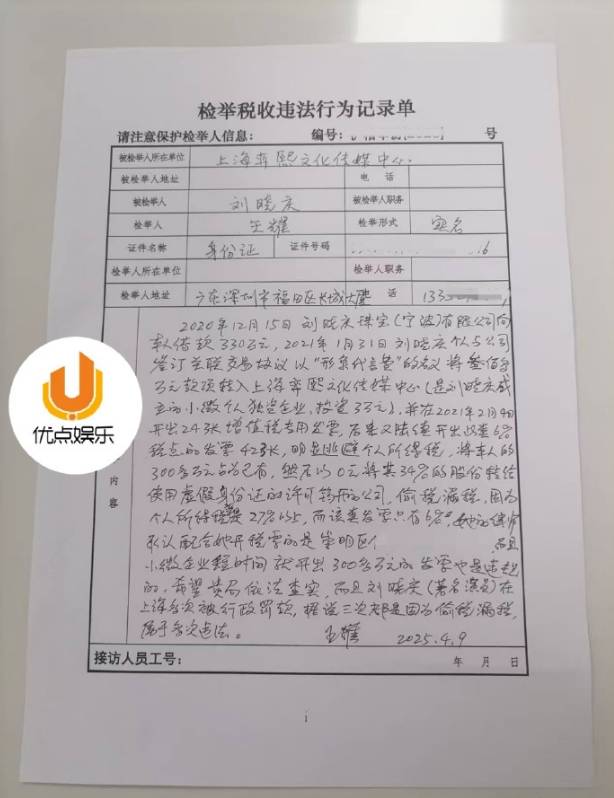 检举税收违法行为记录单
请注意保护检举人信息： 编号： 号
被检举人所在单位 上海弈熙文化传媒中心.
被检举人地址 电 话
被检举人 刘晓庆 被检举人职务
检举人 王耀 检举形式 实名
证件名称 身份证 证件号码 16
检举人所在单位 检举人职务
检举人地址 广东深圳市福田区长城大厦 话 133
内容
2020年12月15日刘晓庆珠宝(宁波)有限公司向
本人借款330万元, 2021年1月31日刘晓庆个人与公司
签订关联交易协议以“形象代言费”的名义将叁佰多
万元款项转入上海弈熙文化传媒中心(是刘晓庆成
立的小微个人独资企业,投资3万元),并在2021年2月4日
开出24张增值税专用发票,后来又陆续开出这类6%
税点的发票42张,明显逃避个人所得税,将本人的
300多万元占为己有,然后以0元将其34%的股份转给
使用虚假身份证的许可 的公司,偷税漏税,因为
个人所得税 27%以上,而该类发票只有6%,她的律师
承认配合她开税票的是崇明区 而且
小微企业短时间就开出300多万元的发票也是违规
的,希望贵局依法查实,而且刘晓庆(著名演员)在
上海多次被行政罚款,据说三次都是因为偷税漏税,
属于多次违法。 王耀 2025.4.9
接访人员工号： 年 月 日
1
优点娱乐